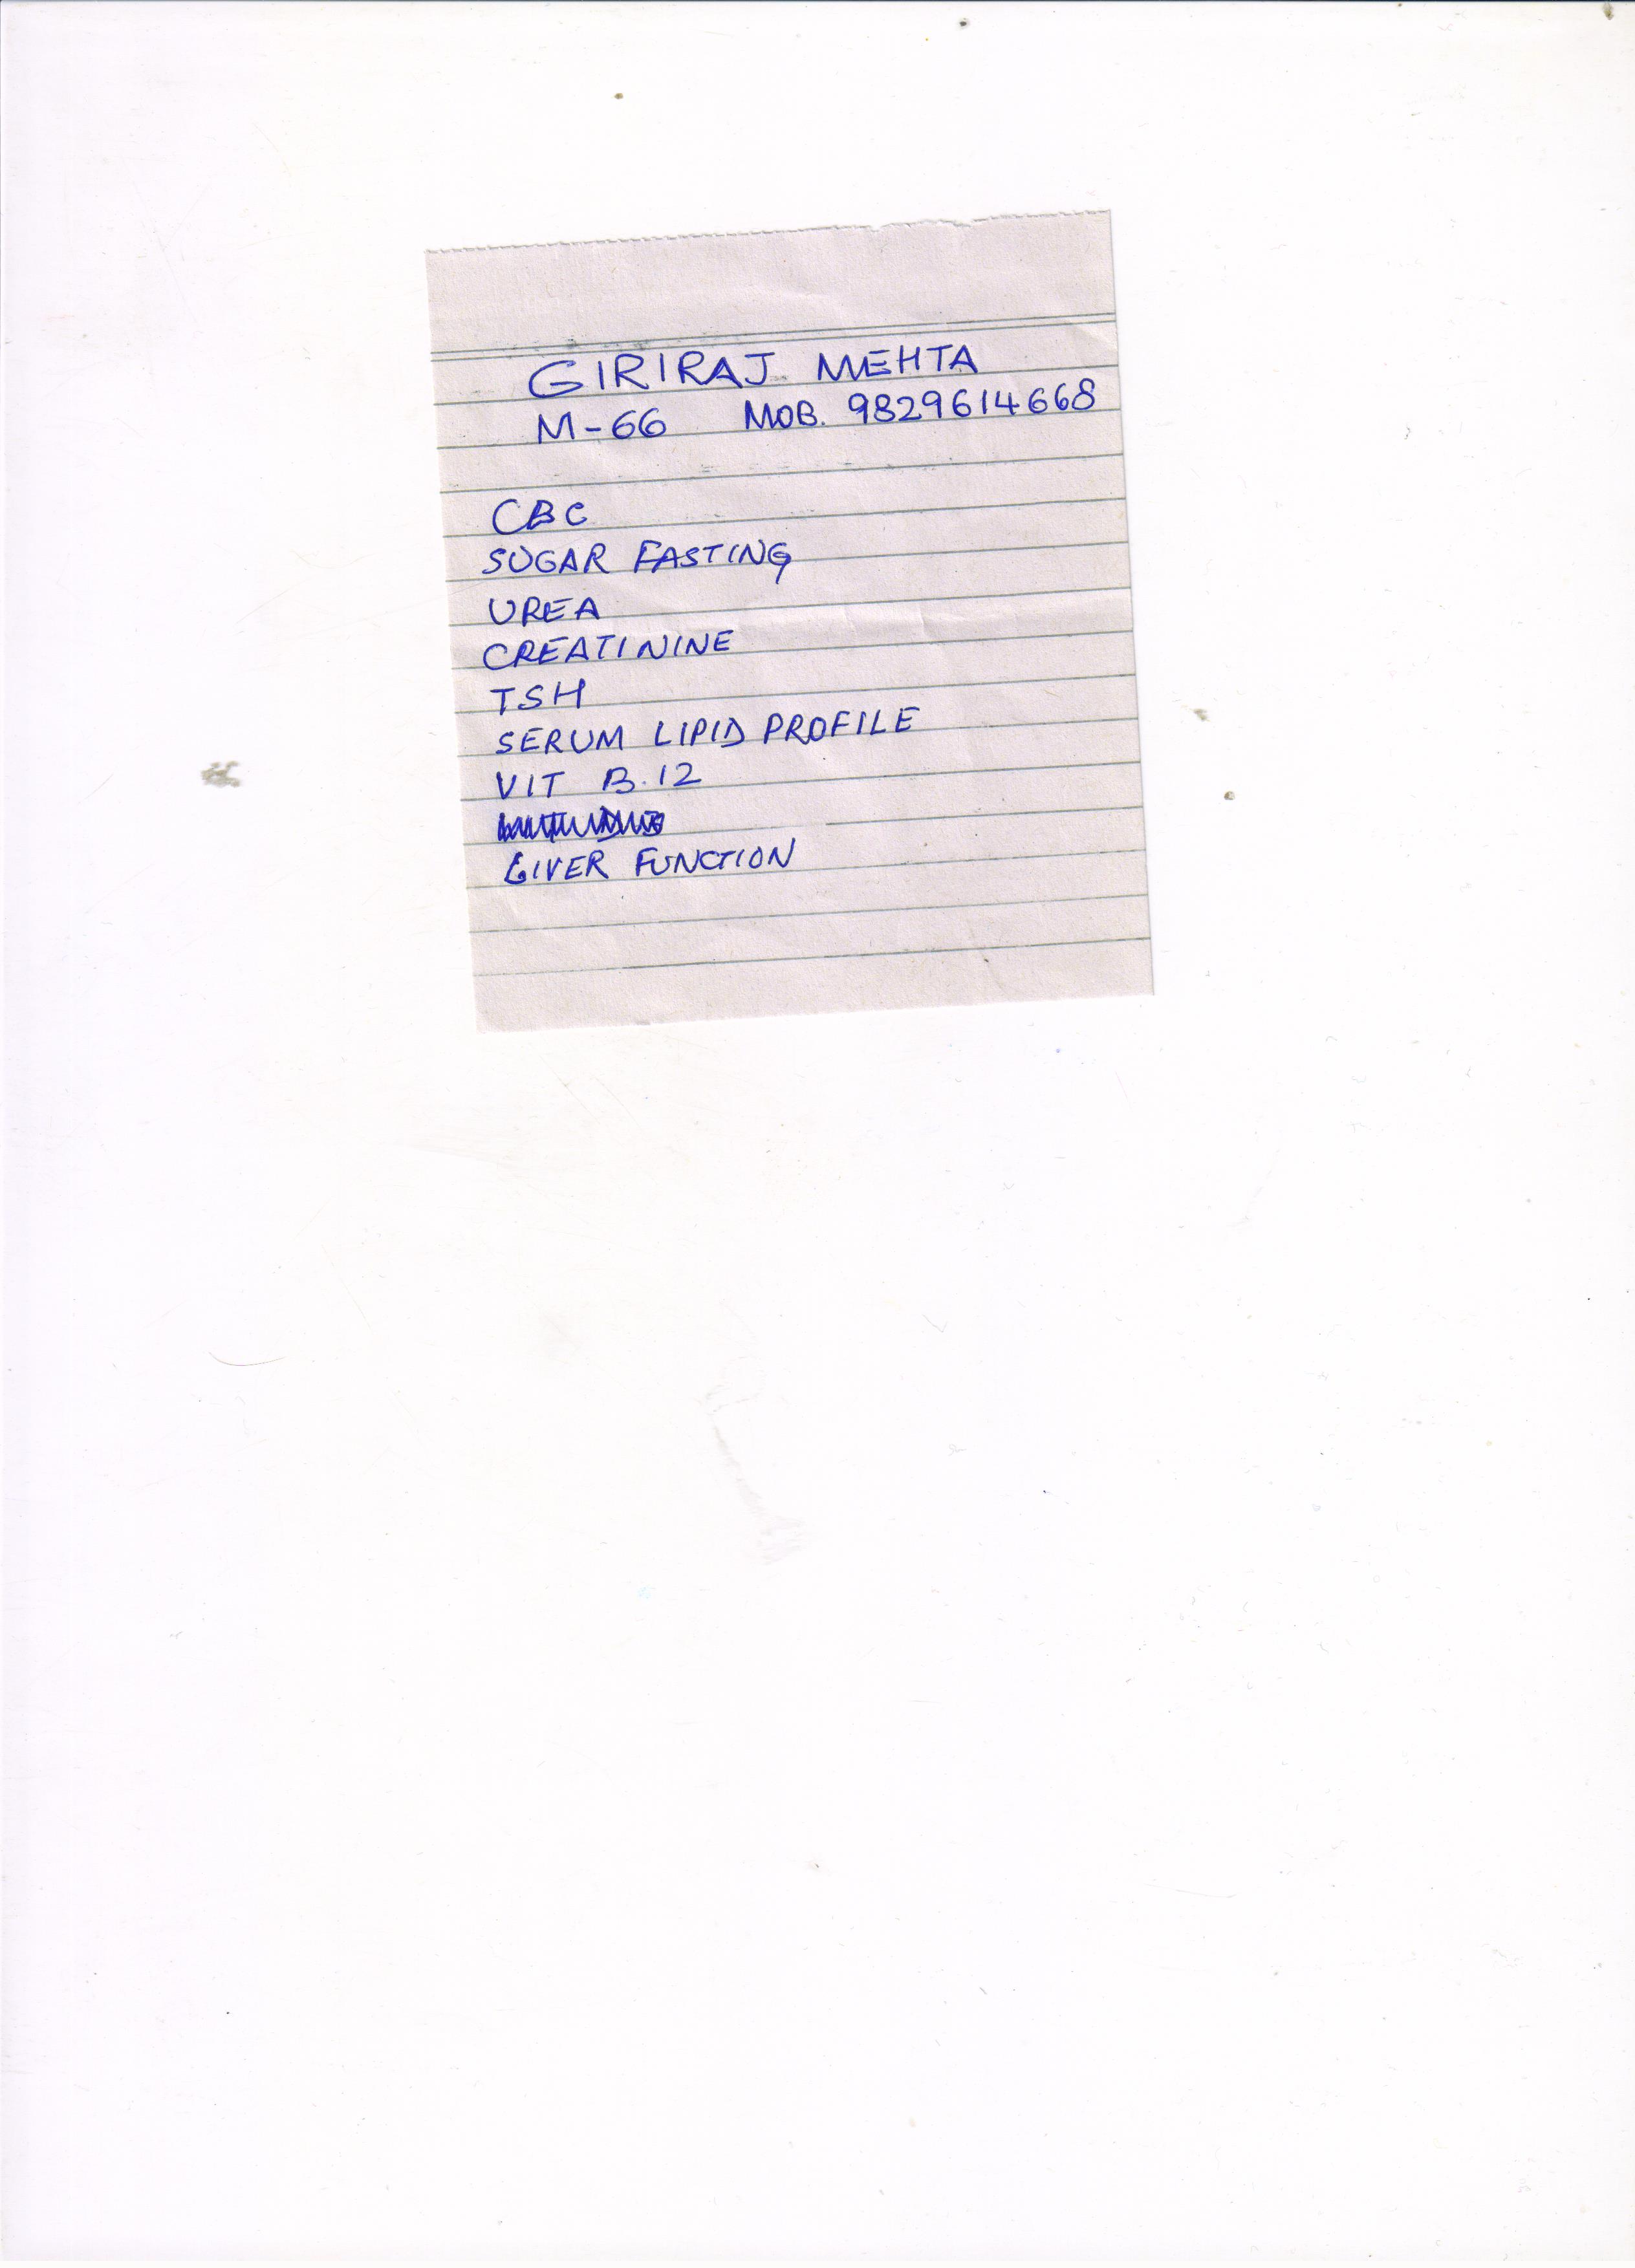 GIRIRAJ MEHTA
M-66 MOB. 9829614668
CBC
SUGAR FASTING
UREA
CREATININE
TSH
SERUM LIPID PROFILE
VIT B.12
LIVER FUNCTION